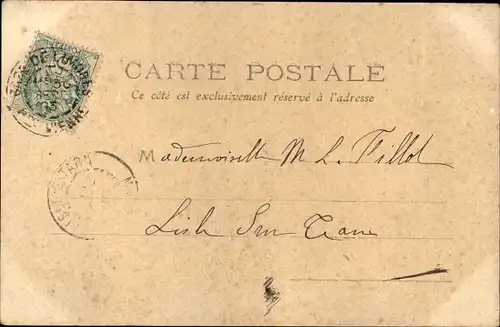 CARTE POSTALE
Ce côté est exclusivement réservé à l'adresse
Mademoiselle M. L. Fillol
Lisle Sur Tarn
TARN